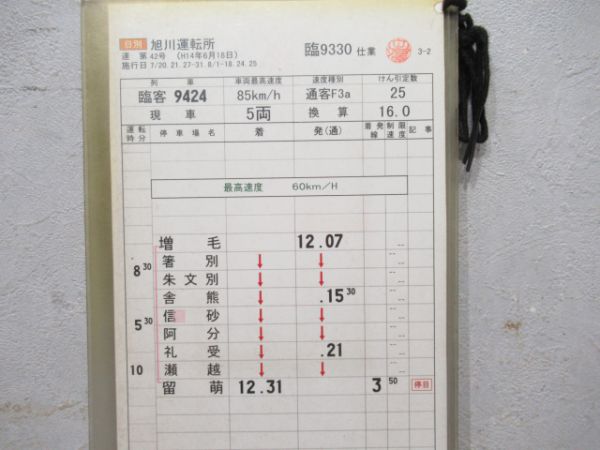 日別 旭川運転所 臨9330 仕業 3-2
達 第42号 (H14年6月18日)
施行日 7/20.21.27-31.8/1-18.24.25
列車 車両最高速度 速度種別 けん引定数
臨客 9424 85km/h 通客F3a 25
現車 5両 換算 16.0
運転時分 停車場名 着 発(通) 着発線 制限速度 記事
最高速度 60km/H
増毛 12.07
箸別 ↓ ↓
8 30 朱文別 ↓ ↓
舎熊 ↓ .15 30
信砂 ↓ ↓
5 30 阿分 ↓ ↓
礼受 ↓ .21
10 瀬越 ↓ ↓
留萌 12.31 3 50 停目